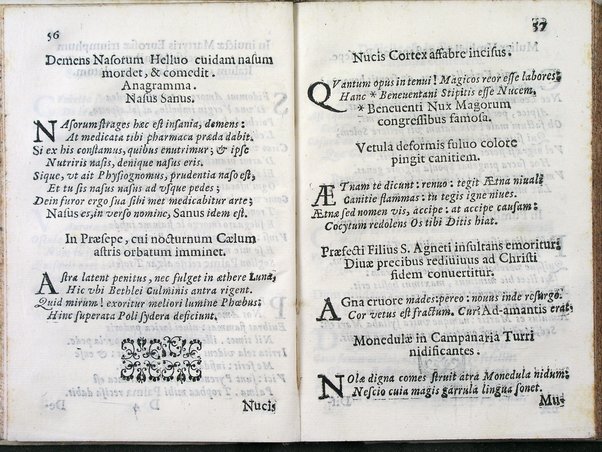 56
Demens Nasorum Helluo cuidam nasum
mordet, & comedit.
Anagramma.
Nasus Sanus.
NAsorum strages hæc est insania, demens:
At medicata tibi pharmaca præda dabit.
Si ex his constamus, quibus enutrimur; & ipse
Nutriris nasis, denique nasus eris.
Sique, vt ait Physiognomus, prudentia naso est,
Et tu sis nasus nasus ad vsque pedes;
Dein furor ergo sua sibi met medicabitur arte;
Nasus es, in verso nomine, Sanus idem est.
In Præsepe, cui nocturnum Cælum
astris orbatum imminet.
Astra latent penitus, nec fulget in æthere Luna,
Hic vbi Bethlei Culminis antra rigent.
Quid mirum? exoritur meliori lumine Phœbus:
Hinc superata Poli sydera deficiunt.
D 4
Nucis
57
Nucis Cortex affabre incisus.
QVantum opus in tenui! Magicos reor esse labores:
Hanc * Beneuentani Stipitis esse Nucem,
* Beneuenti Nux Magorum
congressibus famosa.
Vetula deformis fuluo colore
pingit canitiem.
ÆTnam te dicunt: renuo: tegit Ætna niuali
Canitie flammas: tu tegis igne niues.
Ætna sed nomen vis, accipe: at accipe causam:
Cocytum redolens Os tibi Ditis hiat.
Præfecti Filius S. Agneti insultans emoritur;
Diuæ precibus rediuiuus ad Christi
fidem conuertitur.
AGna cruore mades: pereo: nouus inde resurgo.
Cor vetus est fractum. Cur? Ad-amantis erat.
Monedulæ in Campanaria Turri
nidificantes.
NOlæ digna comes struit atra Monedula nidum:
Nescio cuia magis garrula lingua sonet.
Mul